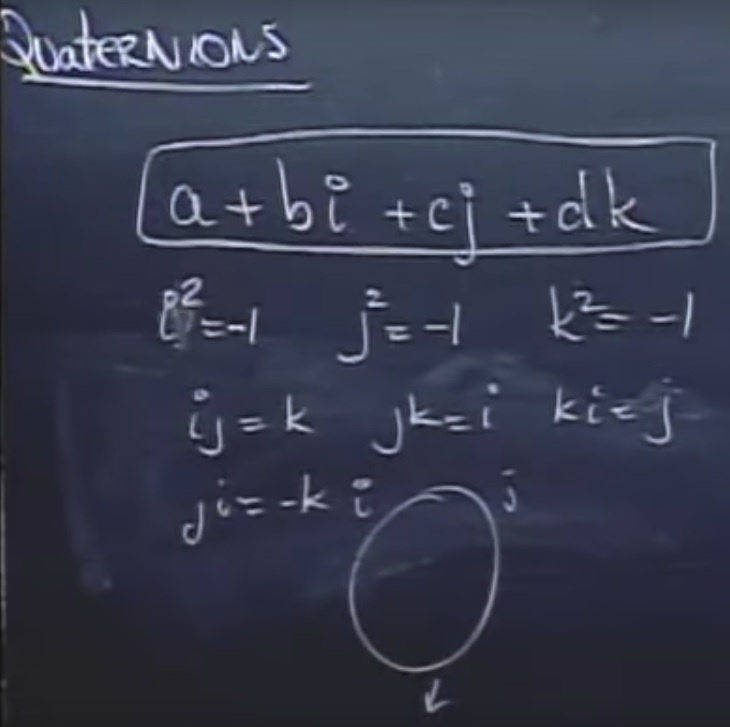 Quaternions
a + bi + cj + dk
i² = -1 j² = -1 k² = -1
ij = k jk = i ki = j
ji = -k i j
k